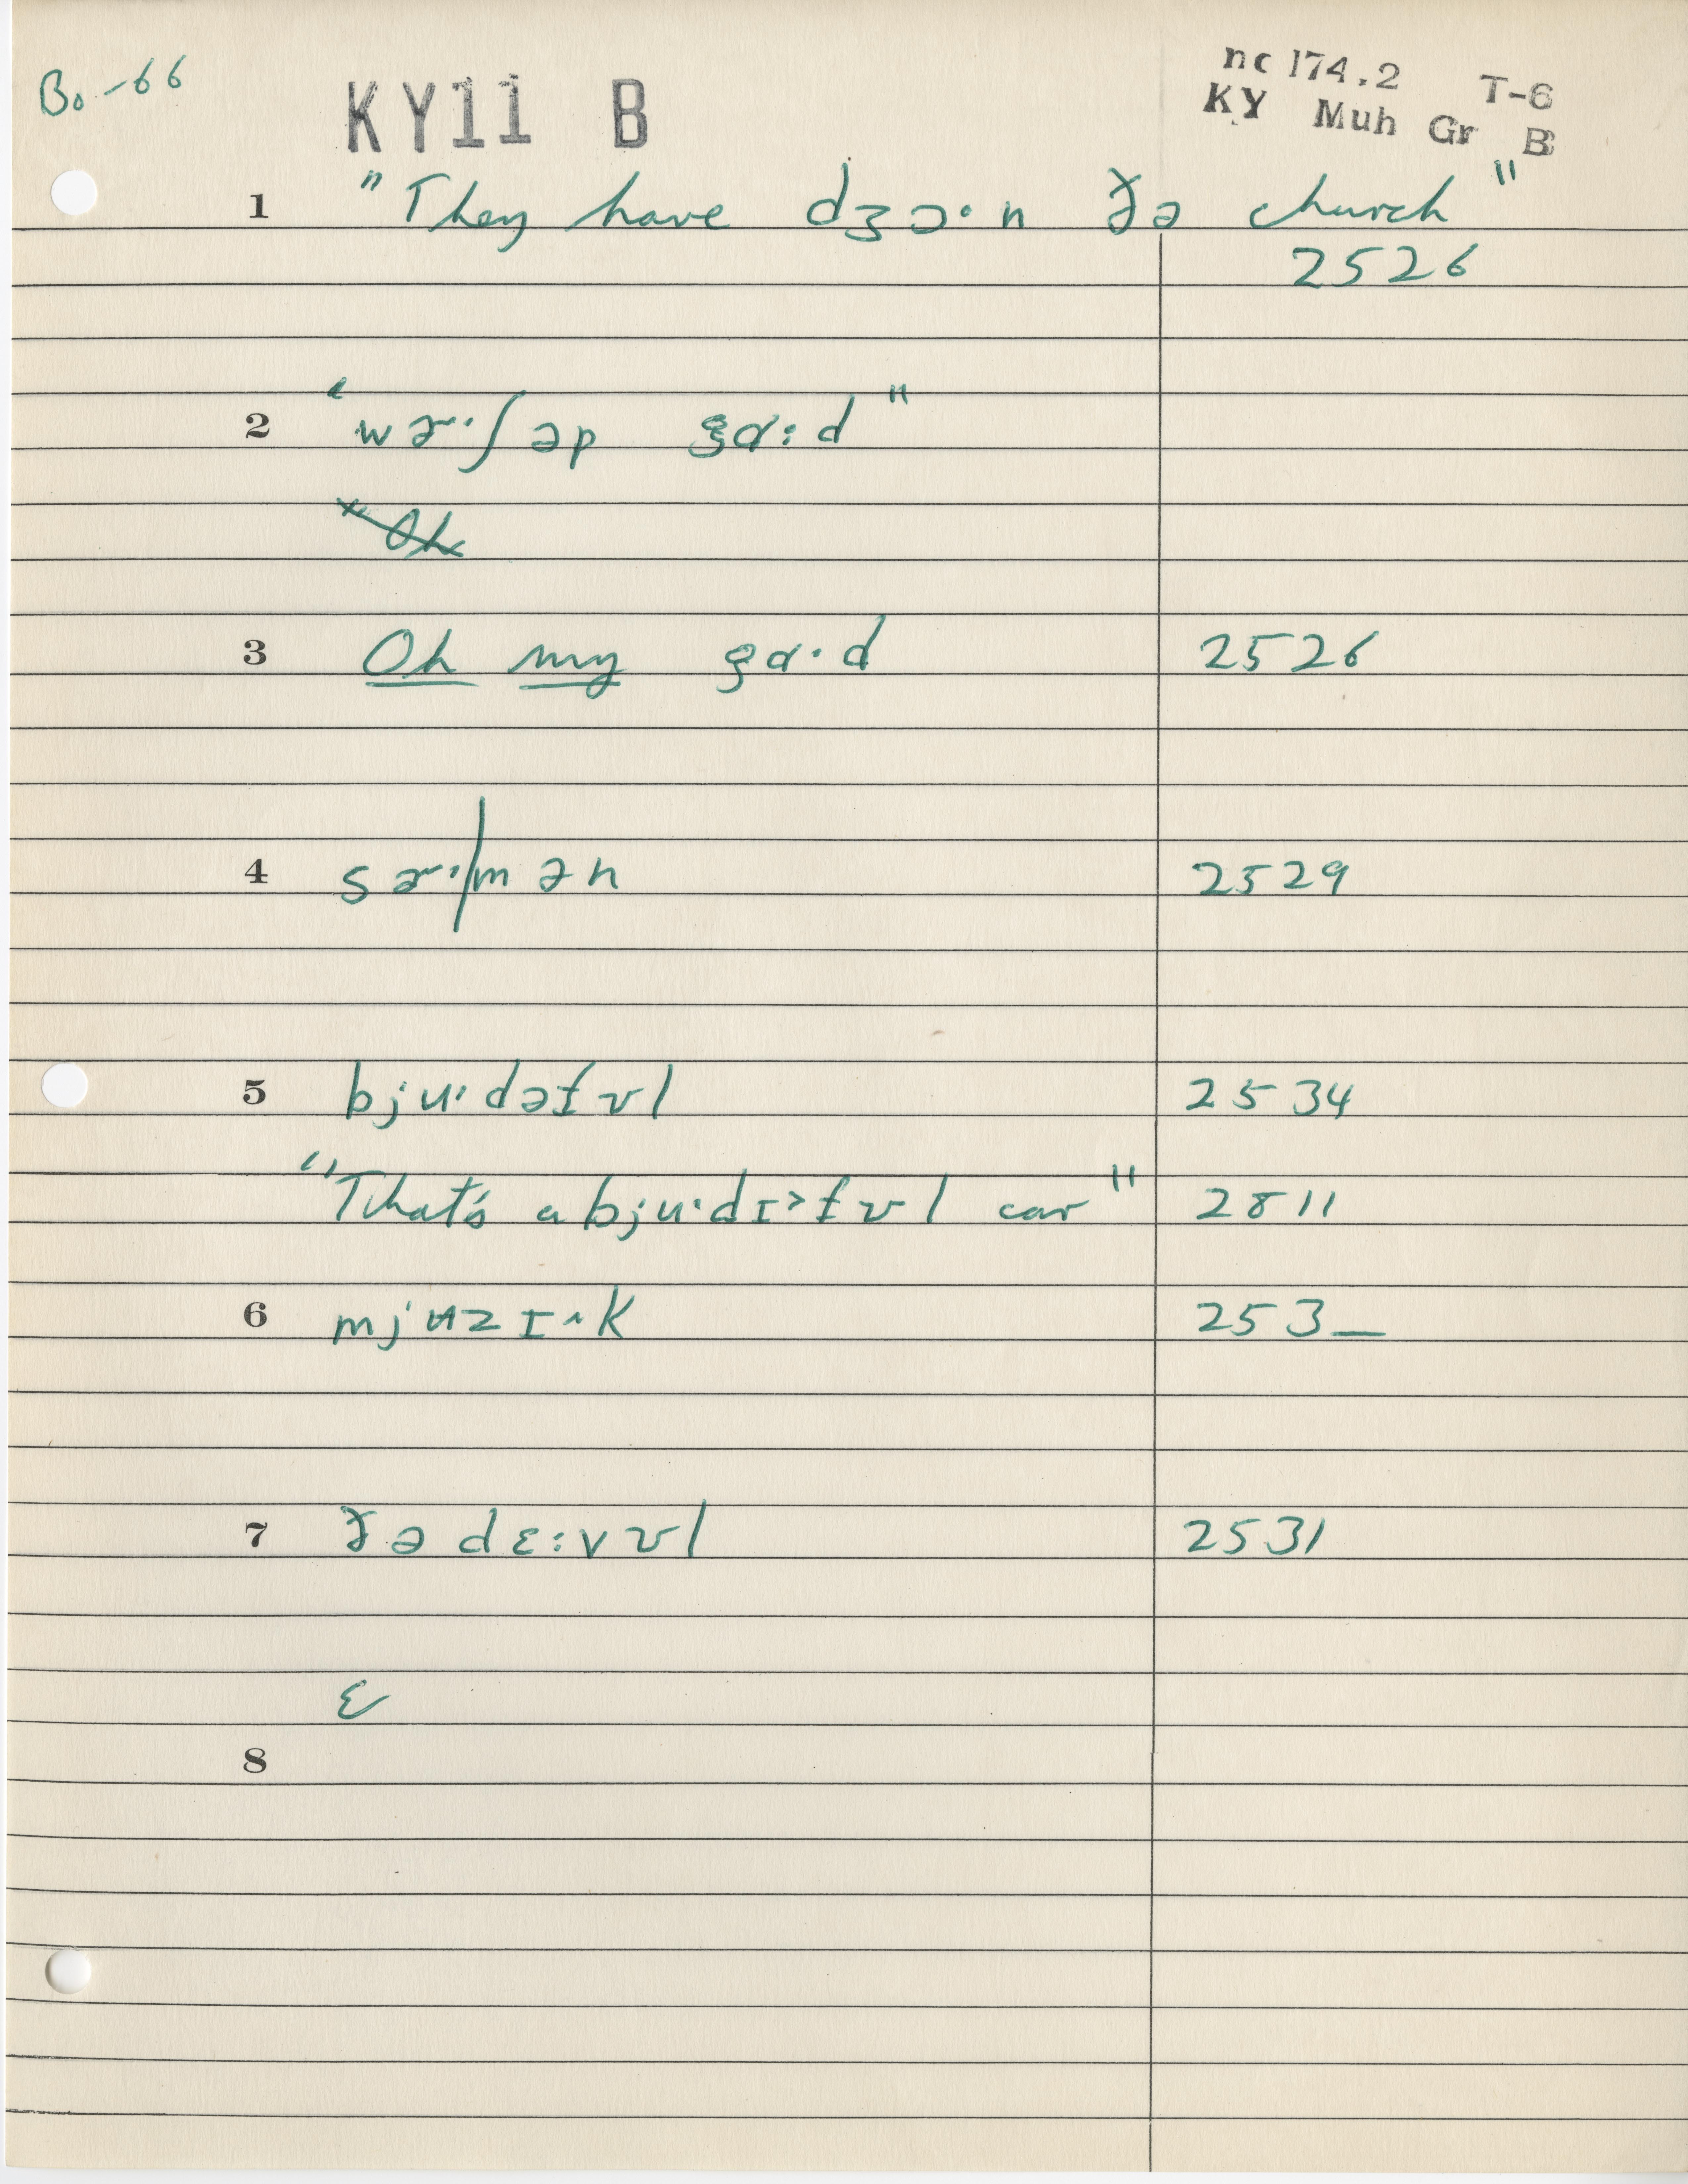 Bo-66
KY11 B
nc 174.2 T-6
KY Muh Gr B
1 "They have dʒɔ·n ðə church"
2526
2 "wɚ·ʃəp gɑ:d"
"Oh
3 Oh my gɑ·d 2526
4 sɚ·/mən 2529
5 bjʉ·dəɫʊl 2534
"That's a bjʉ·dɪ>ɫʊl car" 2811
6 mjʉzɪ^k 253_
7 ðə dɛ:vʊl 2531
ɛ
8